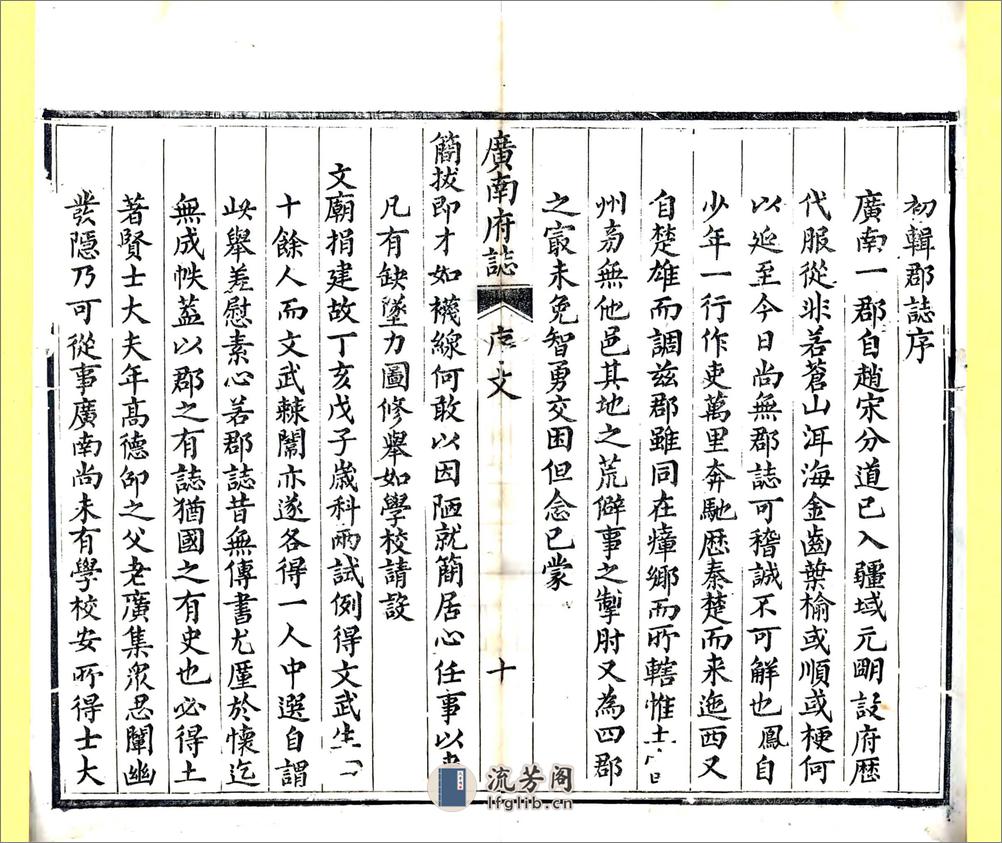 初輯郡誌序
廣南一郡自趙宋分道已入疆域元明設府歷
代服從非若蒼山洱海金齒葉榆或順或梗何
以延至今日尚無郡誌可稽誠不可解也鳳自
少年一行作吏萬里奔馳歷秦楚而来迤西又
自楚雄而調兹郡雖同在瘴鄉而所轄惟土
州別無他邑其地之荒僻事之掣肘又為四郡
之最未免智勇交困但念已蒙
廣南府誌
序文
十
簡拔即才如襪線何敢以因陋就簡居心任事以来
凡有缺墜力圖修舉如學校請設
文廟捐建故丁亥戊子歲科兩試例得文武生
十餘人而文武棘闈亦遂各得一人中選自謂
此舉差慰素心若郡誌昔無傳書尤厪於懷迄
無成帙蓋以郡之有誌猶國之有史也必得土
著賢士大夫年高德卲之父老廣集衆思闡幽
發隱乃可從事廣南尚未有學校安所得士大
流芳阁
lfglib.cn